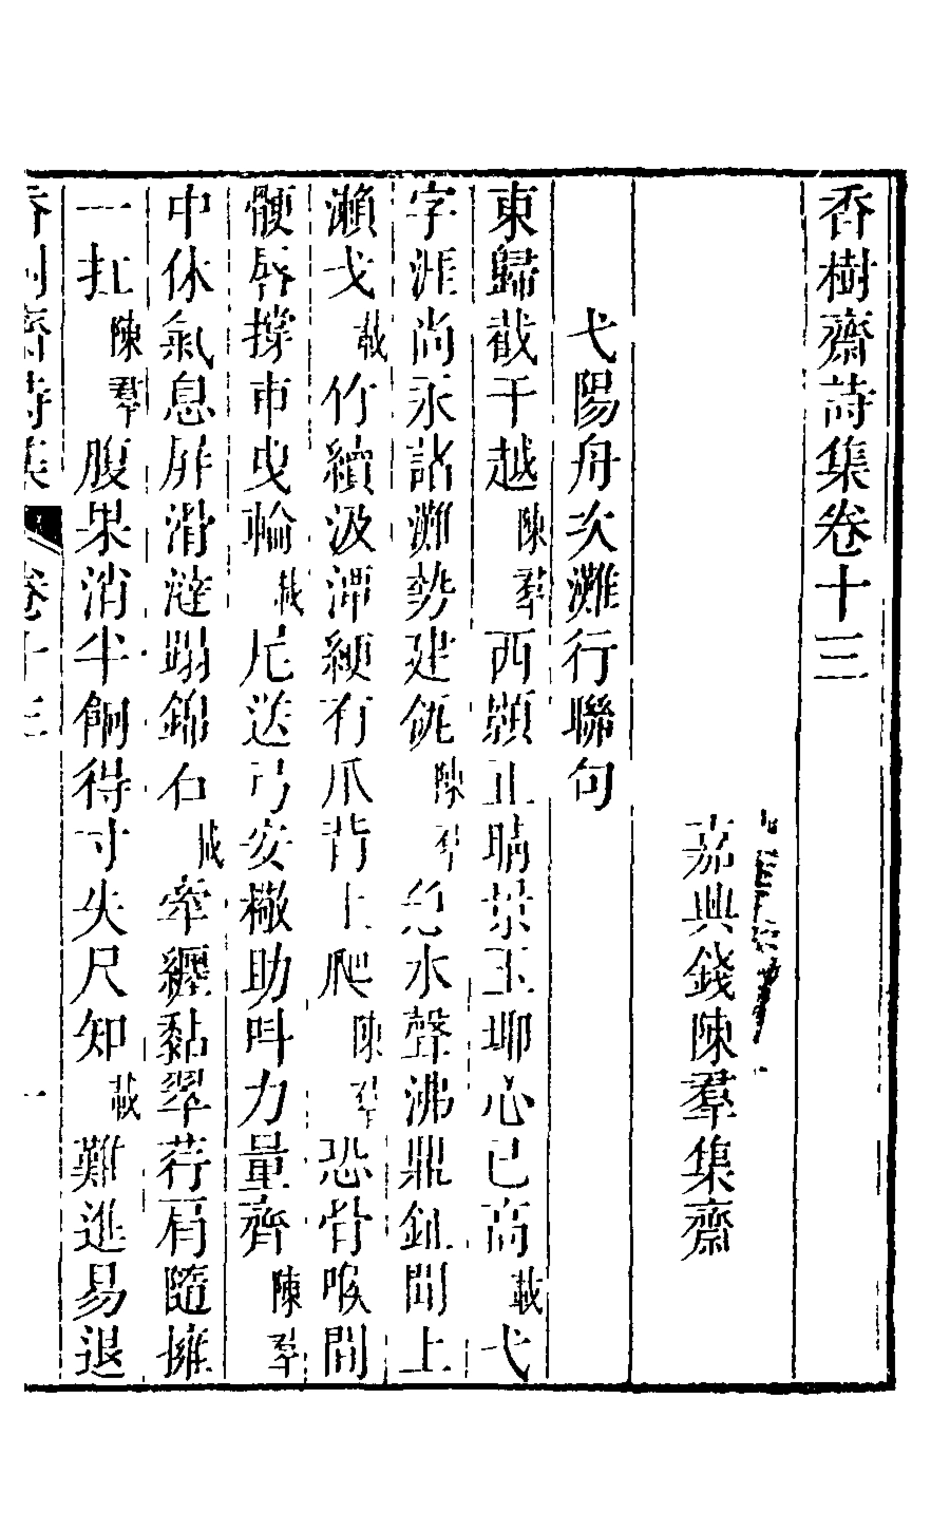 香樹齋詩集卷十三
嘉興錢陳羣集齋
弋陽舟次灘行聯句
東歸截干越陳羣西顥正暠景玉瑘心已高載弋
字涯尚永諸灘勢建瓴陳羣急水聲沸鼎釓聞上
瀨戈載竹續汲潭綆有爪背上爬陳羣恐骨喉間
骾唇撐市曳輪載尾送弓安檄助呌力量齊陳羣
中休氣息屏滑澾蹋錦石載牽纚黏翠荇肩隨擁
一扛陳羣腹果消半餉得寸失尺知載難進易退
香樹齋詩集 卷十三 一